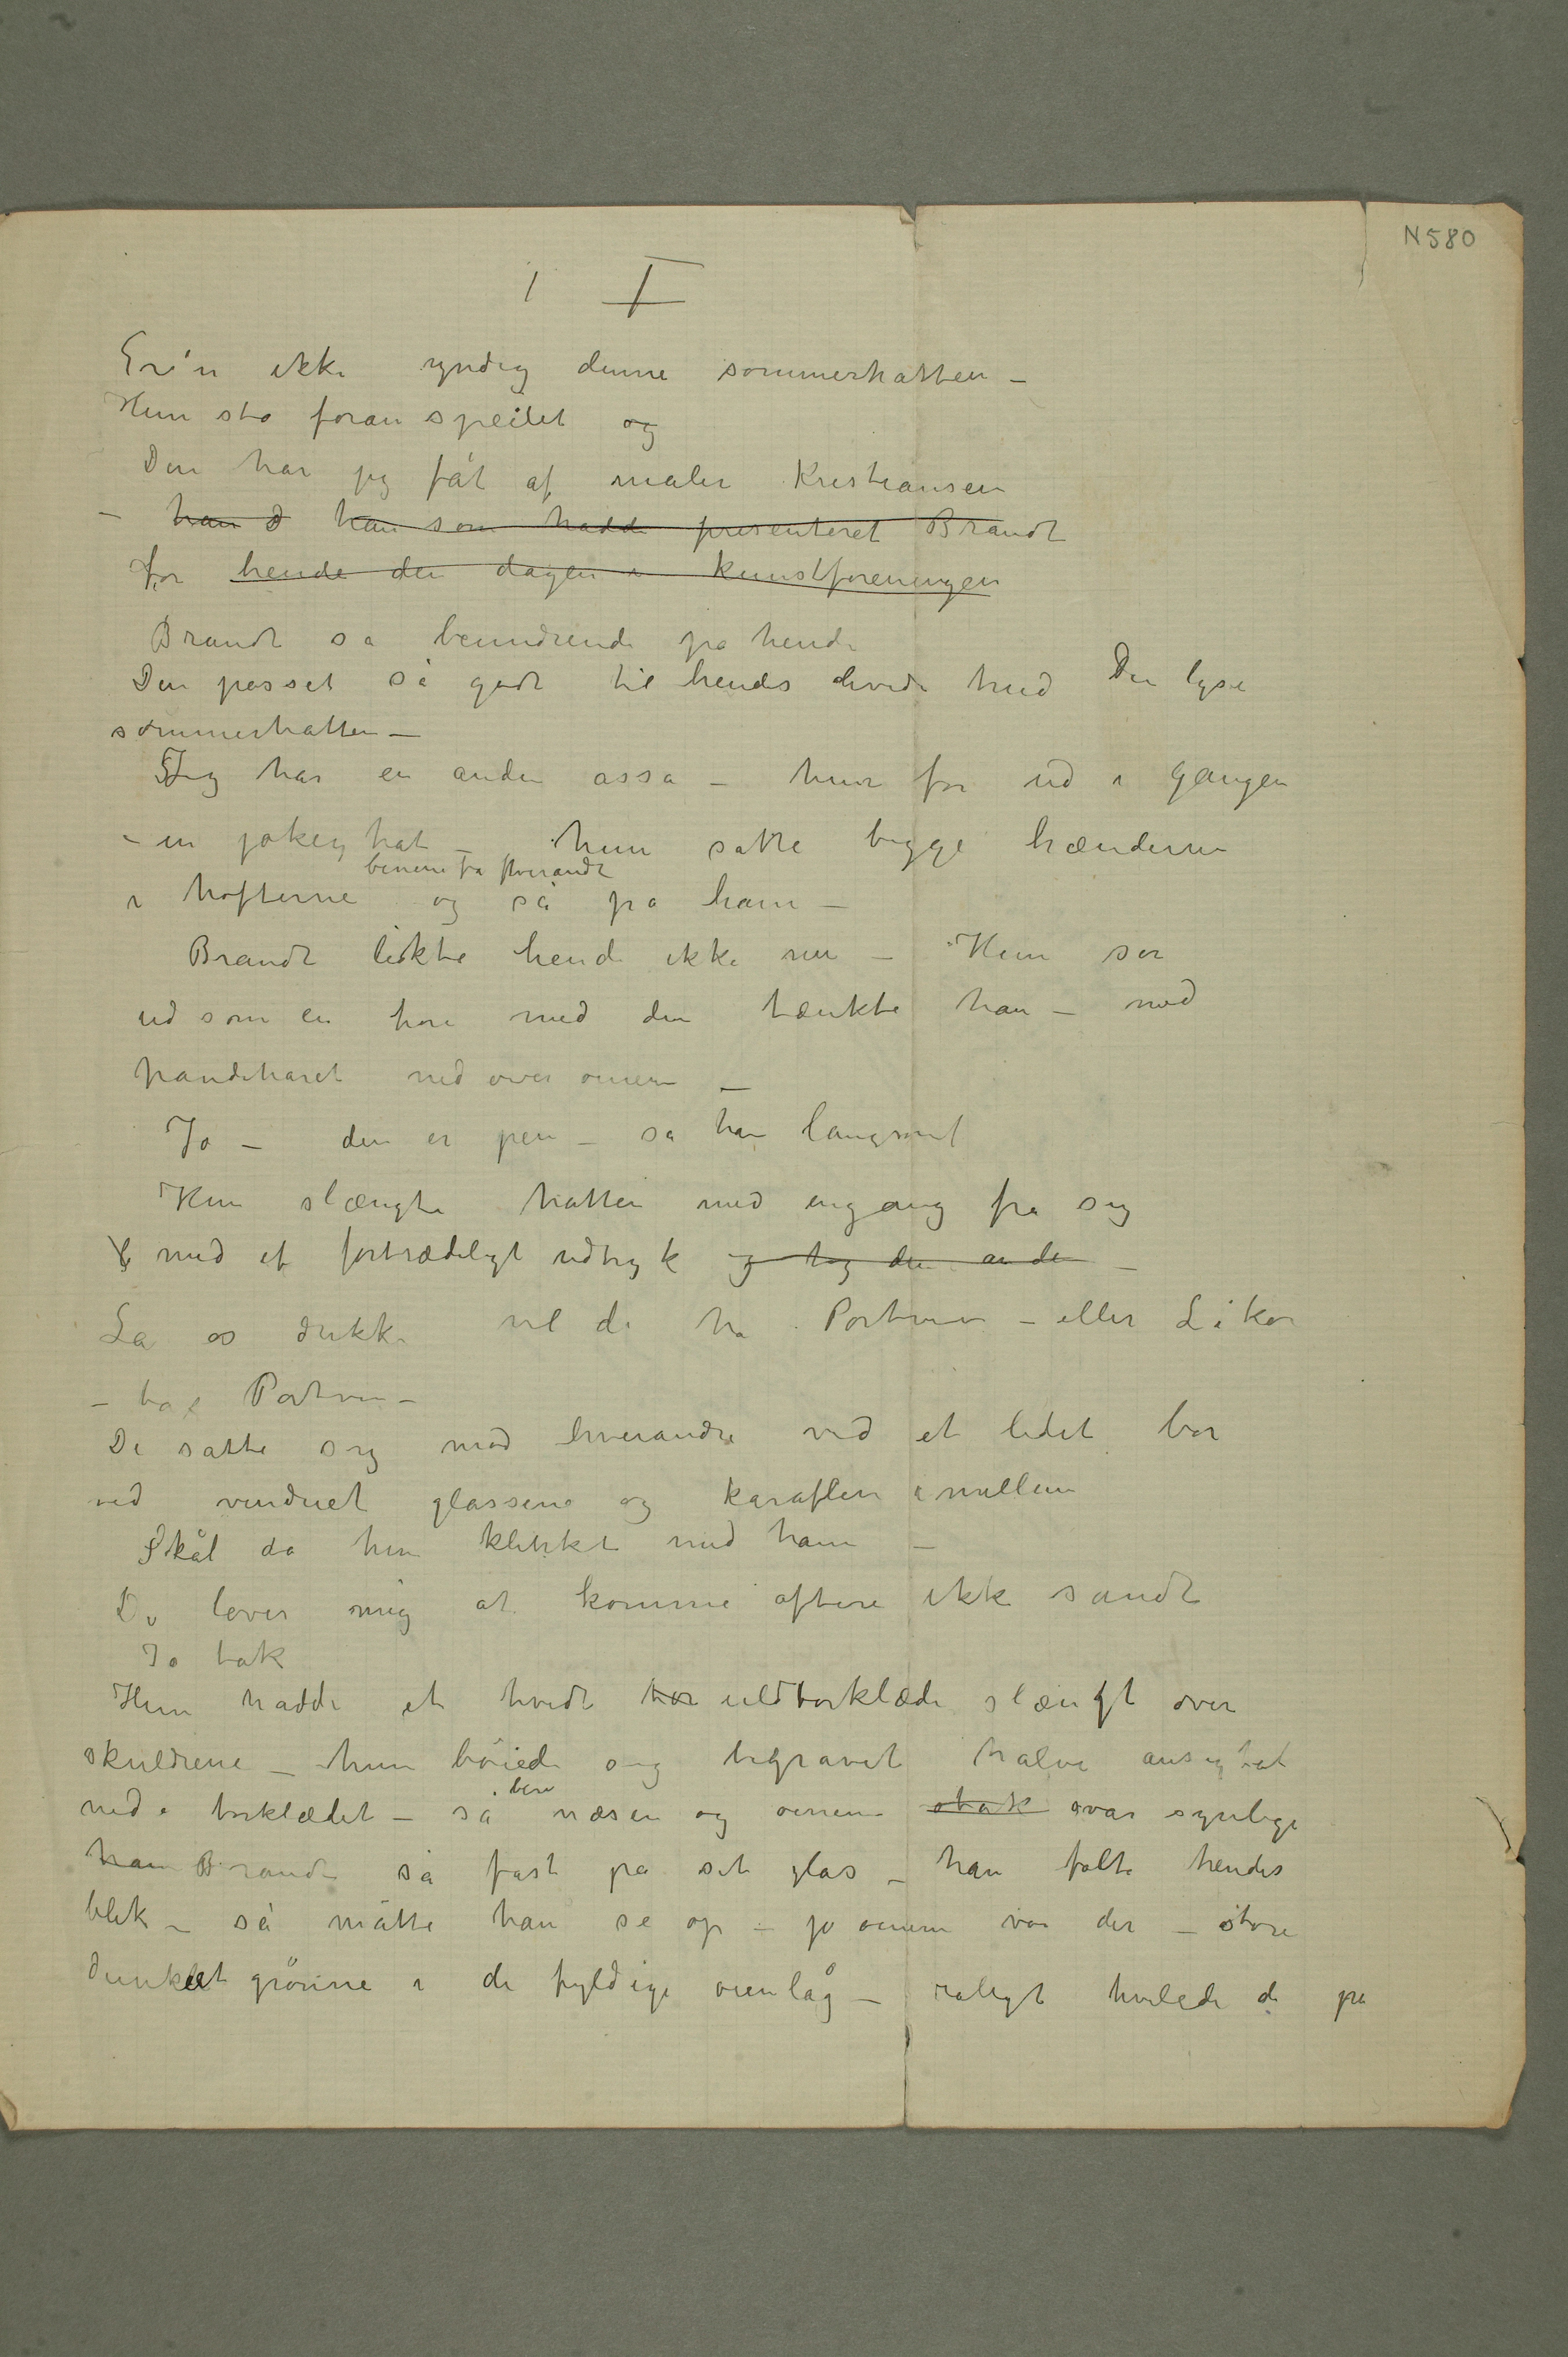 N 580
1 I
Er'n ikke yndig denne sommerhatten –
Hun sto foran speilet og
Den har jeg fåt af maler Kristiansen
– han d han som hadde presenteret Brandt
for hende den dagen i kunstforeningen
Brandt så beundrende på hende
Den passet så godt til hendes hvide hud Den lyse
sommerhatten –
Jeg har en anden osså – hun for ud i gangen
– en jokeyhat – hun satte begge hænderne
benene fra hverandt
i hofterne og så på ham –
Brandt likte hende ikke nu – Hun ser
ud som en hore med den tænkte han – med
pandeharet ned over øinene –
Jo – den er pen – sa han langsomt
Hun slængte hatten med engang fra sig
med et fortrædeligt udtryk og tog den ande –
La os drikke vil de ha Portvin – eller Likør
– ta Portvin –
De satte sig mod hverandre ved et lidet bor
ved vinduet glassene og karaflen imellem
Skål da hun klinket med ham –
De lover mig at komme oftere ikke sandt
Ja tak
Hun hadde et hvidt tør uldtørklæde slængt over
skuldrene – hun bøiede sig begravet halve ansigtet
bare
ned i tørklædet – så næsen og øinene stak var synlige
han Brandt så fast på sit glas – han følte hendes
blik – så måtte han se op – jo øinene var der – store
dunkelt grønne i de fyldige øienlåg – roligt hvilede de på